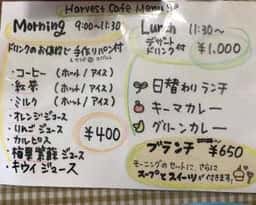 Harvest Cafe Menu
Morning 9:00〜11:30
ドリンクのお値段で手作りパン付
・コーヒー (ホット/アイス)
・紅茶 (ホット/アイス)
・ミルク (ホット/アイス)
・オレンジジュース
・りんごジュース
・カルピス
・梅果紫蘇ジュース
・キウイジュース
¥400
Lunch 11:30〜
デザート
ドリンク付 ¥1,000
日替わりランチ
キーマカレー
グリーンカレー
ブランチ ¥650
モーニングのセットに、さらに
スープとスイーツが付きます。